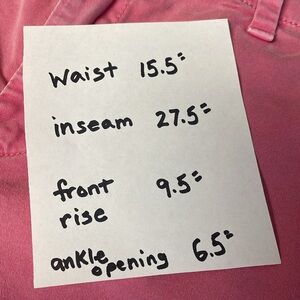 Waist 15.5"
inseam 27.5"
front 9.5"
rise
ankle opening 6.5"